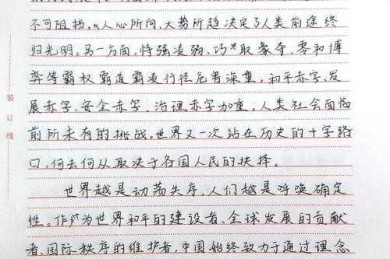 不可阻挡，人心所向、大势所趋决定了人类前途终
归光明，另一方面，恃强凌弱、巧*取豪夺、零和博
弈等霸权霸道霸凌行径危害深重，和平赤字、发
展赤字、安全赤字、治理赤字加重，人类社会面临
前所未有的挑战。世界又一次站在历史的十字路
口，何去何从取决于各国人民的抉择。
世界越是动荡失序，人们越是呼唤确定
性。作为世界和平的建设者、全球发展的贡献
者、国际秩序的维护者，中国始终致力于通过理念
装订线